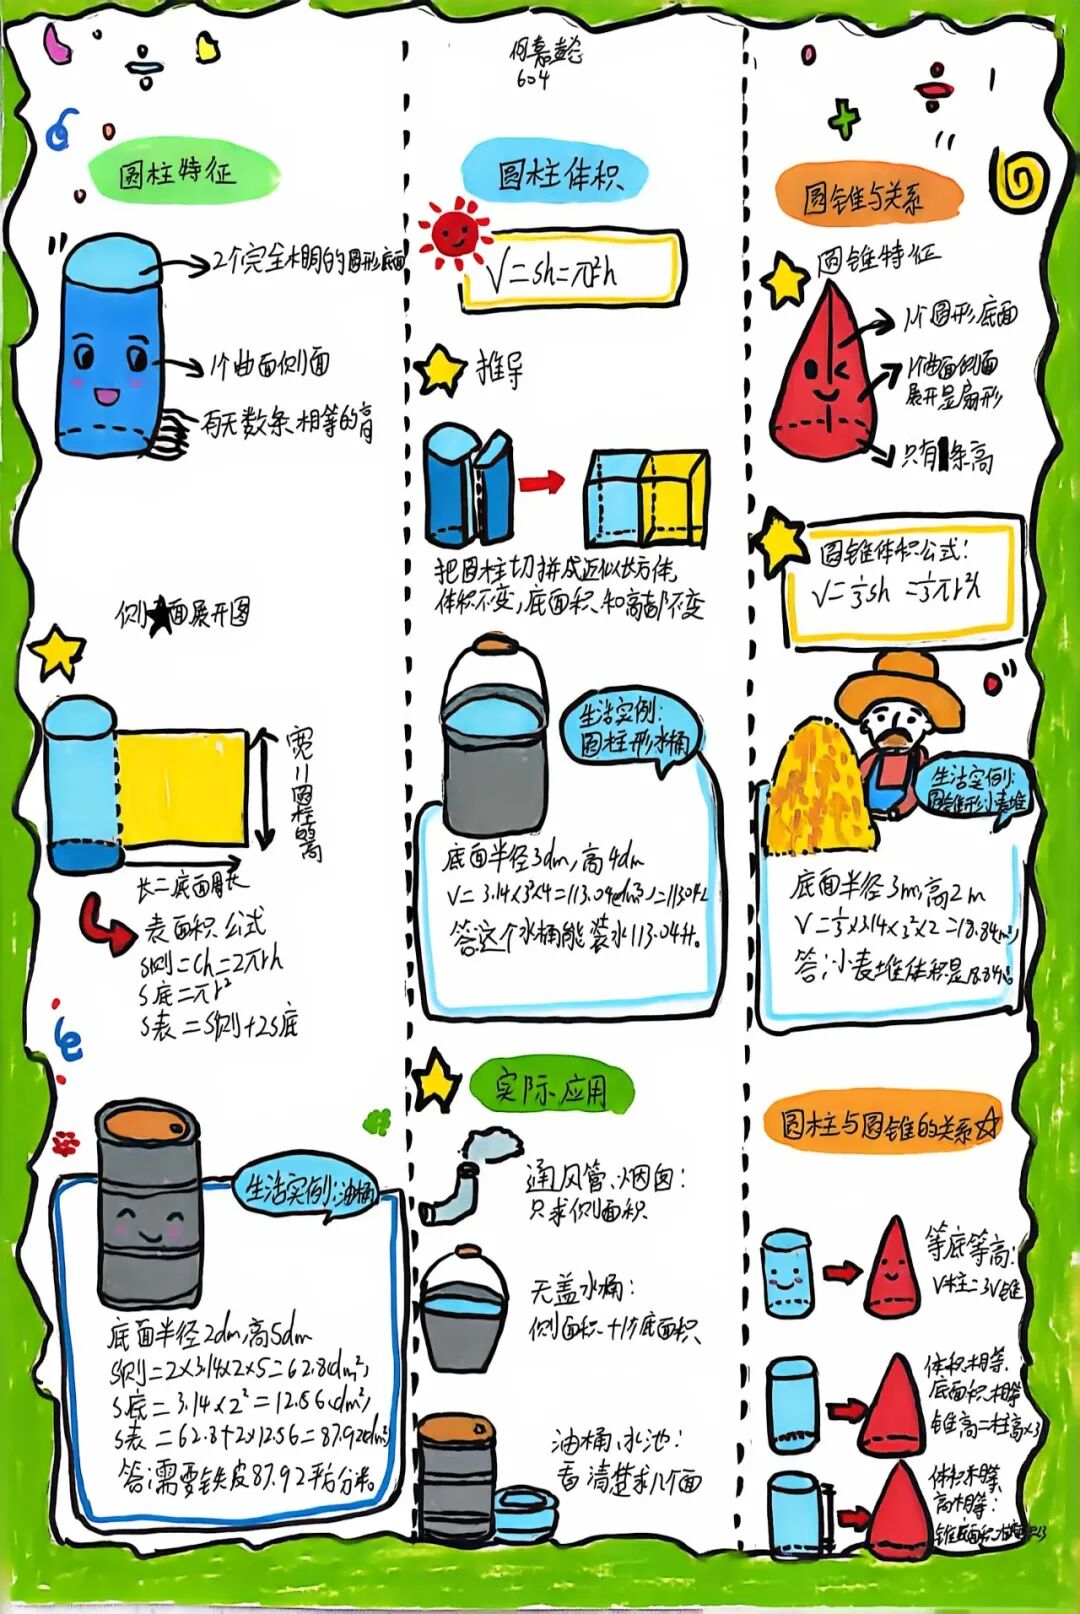 何嘉懿
604
圆柱特征
2个完全相同的圆形底面
1个曲面侧面
有无数条相等的高
侧面展开图
宽=圆柱的高
长=底面周长
表面积公式
S侧=Ch=2πrh
S底=πr²
S表=S侧+2S底
生活实例:油桶
底面半径2dm,高5dm
S侧=2×3.14×2×5=62.8(dm²)
S底=3.14×2²=12.56(dm²)
S表=62.8+2×12.56=87.92(dm²)
答:需要铁皮87.92平方分米。
圆柱体积
V=Sh=πr²h
推导
把圆柱切拼成近似长方体,
体积不变,底面积和高都不变
生活实例:
圆柱形水桶
底面半径3dm,高4dm
V=3.14×3²×4=113.04(dm³)=113.04L
答:这个水桶能装水113.04升。
实际应用
通风管、烟囱:
只求侧面积
无盖水桶:
侧面积+1个底面积
油桶,水池:
看清楚求几个面
圆锥与关系
圆锥特征
1个圆形底面
1个曲面侧面
展开是扇形
只有1条高
圆锥体积公式:
V=⅓Sh=⅓πr²h
生活实例:
圆锥形小麦堆
底面半径3m,高2m
V=⅓×3.14×3²×2=18.84(m³)
答:小麦堆体积是18.84m³。
圆柱与圆锥的关系
等底等高:
V柱=3V锥
体积相等,
底面积相等
锥高=柱高×3
体积相等,
高相等:
锥底面积=柱底×3